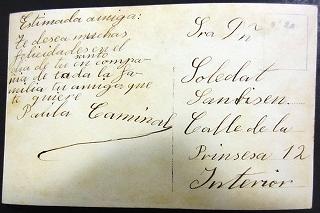 Estimada amiga:
te desea muchas
felicidades en el
dia de tu santo
en compa-
ñia de toda la fa-
milia tu amiga que
te quiere
Paula Caminal
Sra Dn
Soledat
Santisen.
Calle de la
Prinsesa 12
Interior